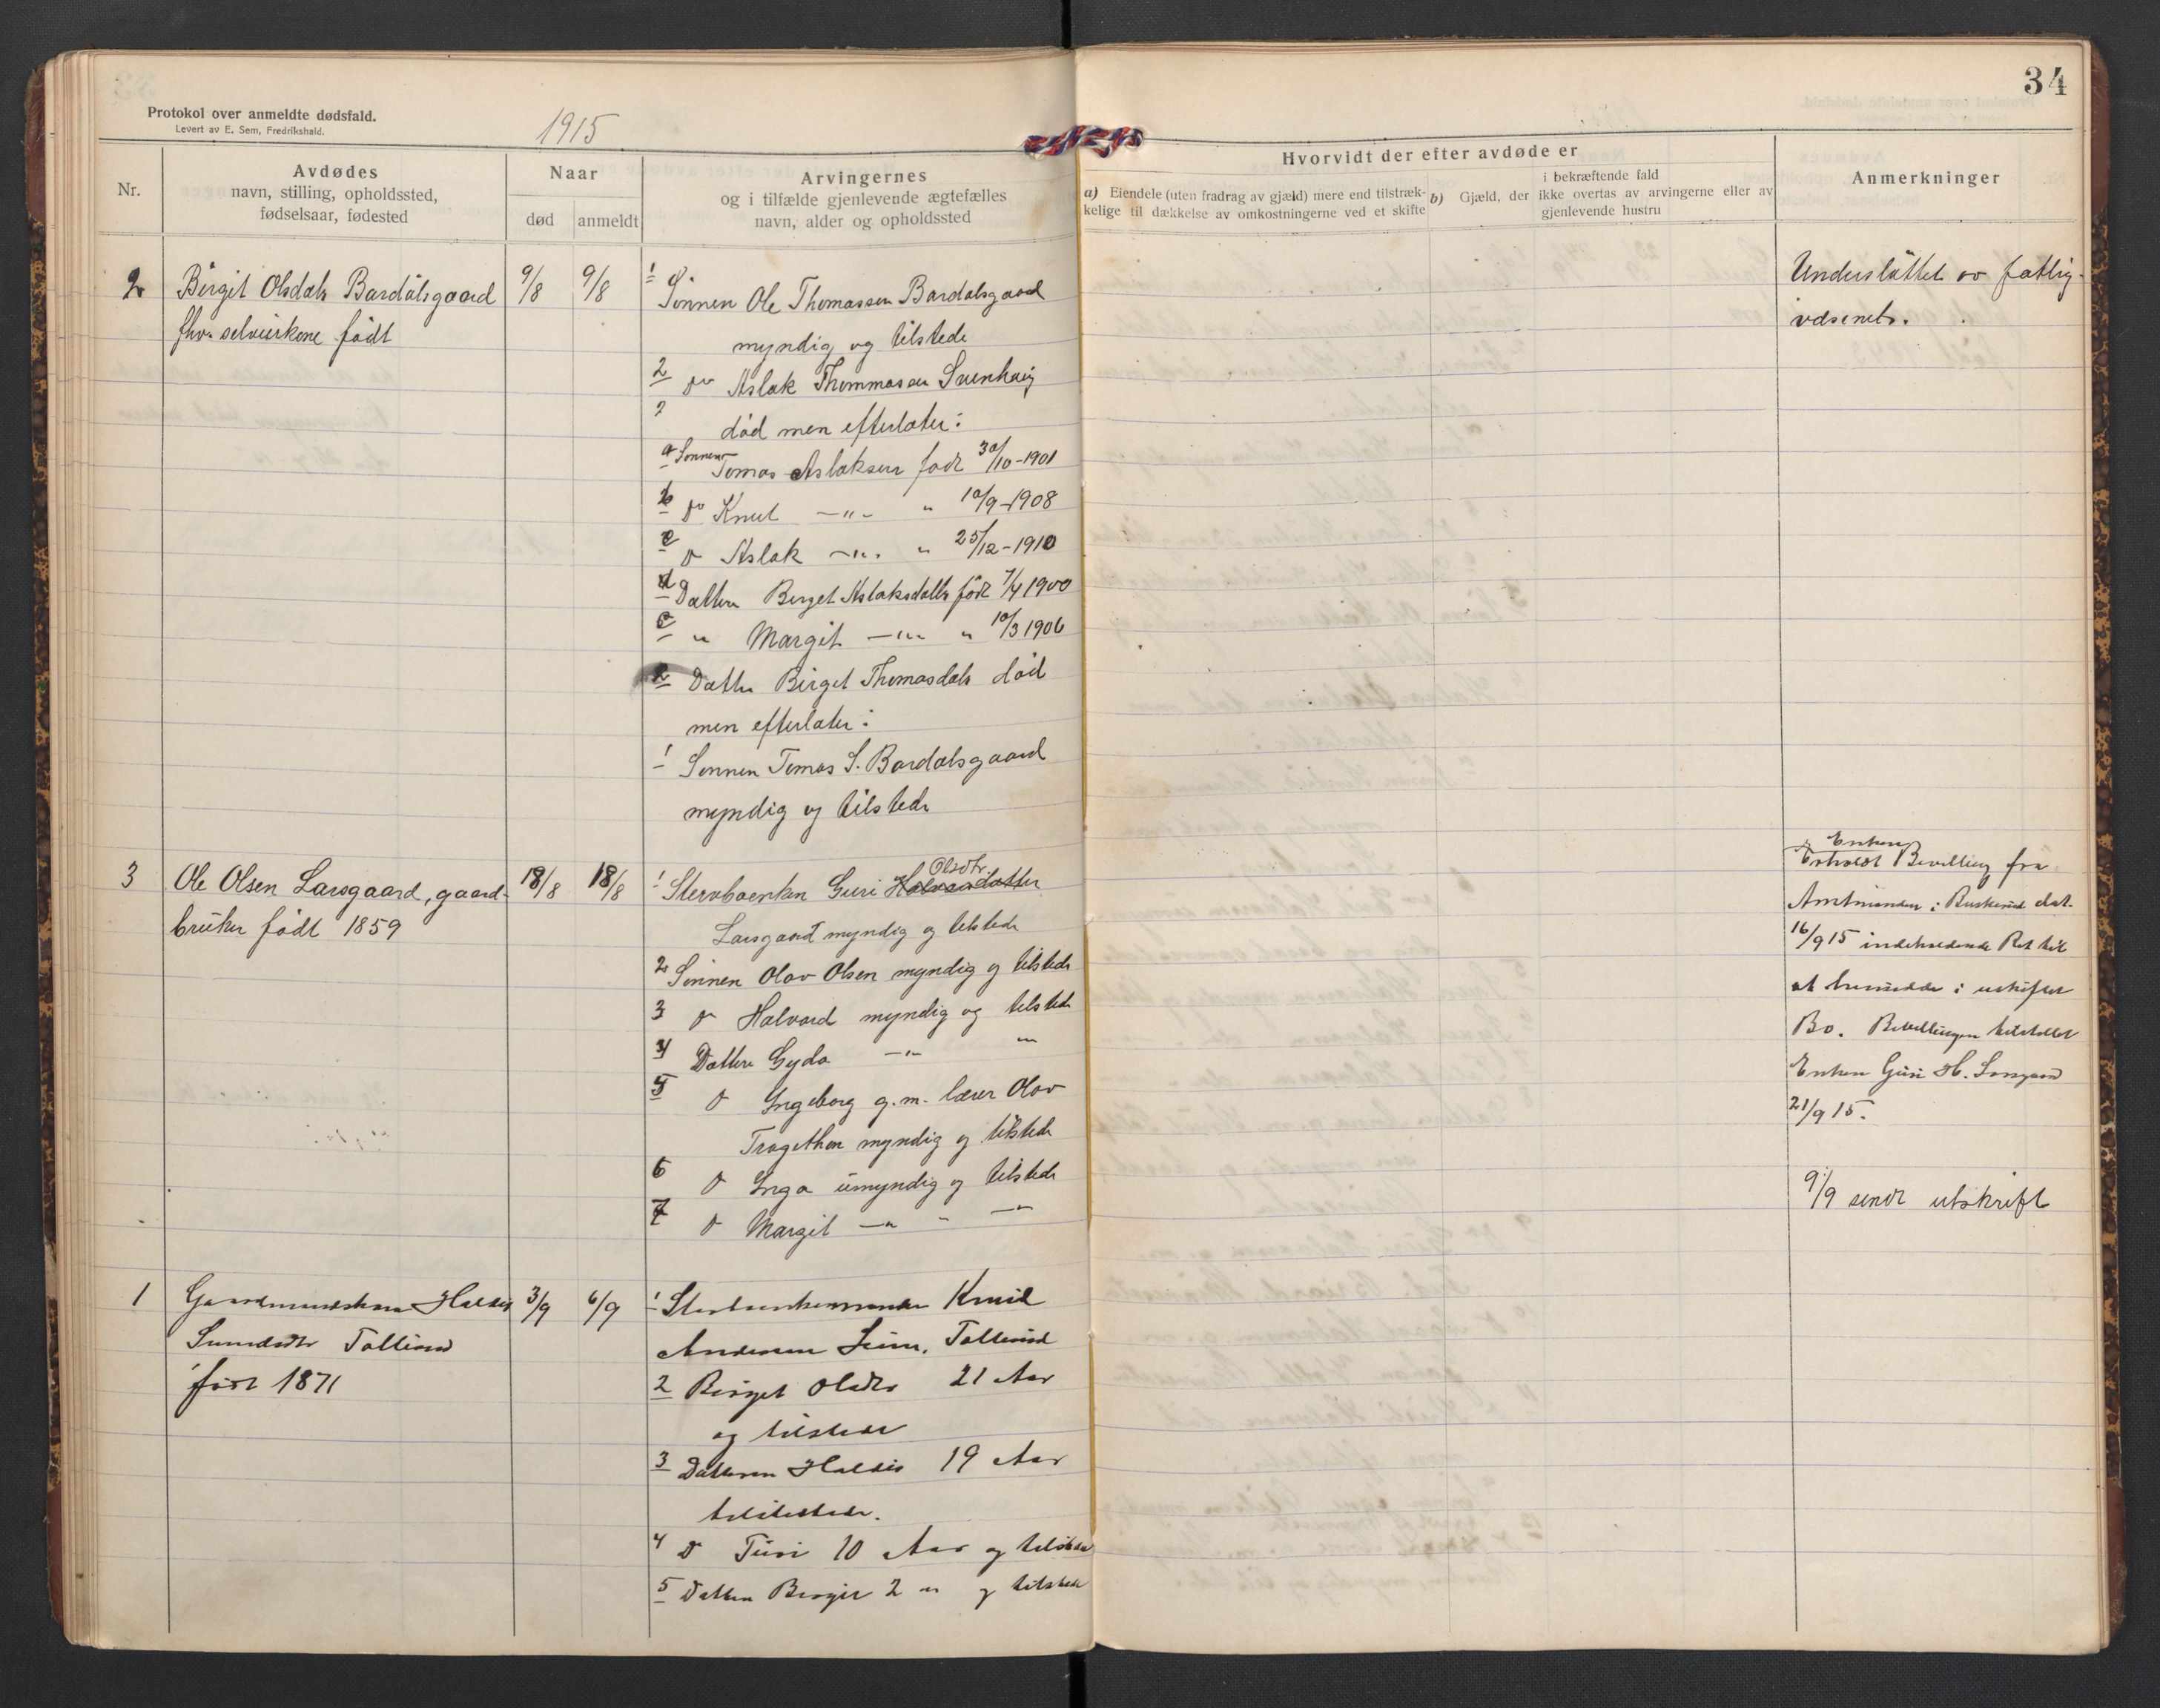 34
Protokol over anmeldte dødsfald.
Levert av E. Sem, Fredrikshald.
1915
Nr.
Avdødes
navn, stilling, opholdssted,
fødselsaar, fødested
Naar
død
anmeldt
Arvingernes
og i tilfælde gjenlevende ægtefælles
navn, alder og opholdssted
Hvorvidt der efter avdøde er
a) Eiendele (uten fradrag av gjæld) mere end tilstræk-
kelige til dækkelse av omkostningerne ved et skifte
b) Gjæld, der
i bekræftende fald
ikke overtas av arvingerne eller av
gjenlevende hustru
Anmerkninger
2 Birgit Olsdatr Bardalsgaard 9/8 9/8
fhv. født
1 Sønnen Ole Thomassen Bardalsgaard
myndig og tilstede
2 do Aslak Thommassen
død men efterlater:
a Sønnen Tomas Aslaksen født 30/10-1901
b do Knut -"- " 10/9-1908
c do Aslak -"- " 25/12-1910
d Datter Birget Aslaksdatter født 7/4 1900
e " Margit -"- " 10/3 1906
2 Datter Birget Thomasdatr død
men efterlater:
1 Sønnen Tomas S. Bardalsgaard
myndig og tilstede
Understøttet av fattig-
væsenet.
3 Ole Olsen Larsgaard, gaard- 18/8 18/8
bruker født 1859
1 Stervboenken Guri Halvorsdatter Olsdtr.
Larsgaard myndig og tilstede
2 Sønnen Olav Olsen myndig og tilstede
3 do Halvard myndig og tilstede
4 Datter Gyda -"- "
5 do Ingeborg g.m. lærer Olav
Tragethon myndig og tilstede
6 do Inga umyndig og tilstede
7 do Margit -"- " -"-
Enken
Erholdt Bevilling fra
Amtmanden i Buskerud dat.
16/9 15 indeholdende Ret til
at hensidde i uskiftet
Bo. Bevillingen tilstillet
Enken Guri H. Larsgaard
21/9 15.
9/9 sendt utskrift
1 Gaardmandskone 3/9 6/9
født 1871
1 Knud
Andersen
2 Birget Olsdtr 21 Aar
og tilstede
3 Datteren 19 Aar
tilstede.
4 do Turi 10 Aar og tilstede
5 Datter Birgit 2 " og tilstede